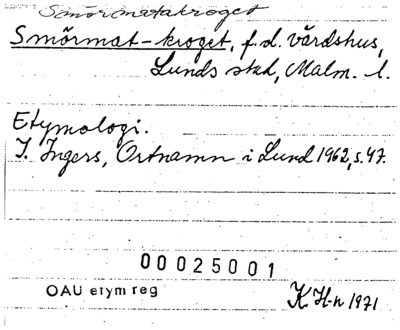 Smörmatakroget
Smörmat-kroget, f.d. värdshus,
Lunds stad, Malm. l.
Etymologi.
I. Ingers, Ortnamn i Lund 1962, s. 47.
00025001
OAU etym reg
K H-n 1971